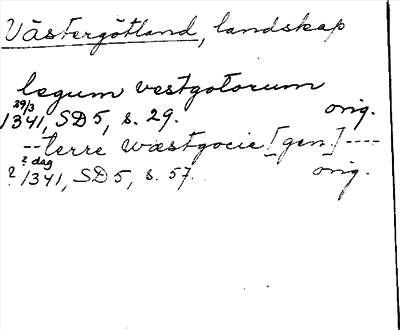 Västergötland, landskap
legum vestgotorum
29/3
1341, SD 5, s. 29. orig.
--terre wæstgocie [gen.]----
? dag
? 1341, SD 5, s. 57. orig.